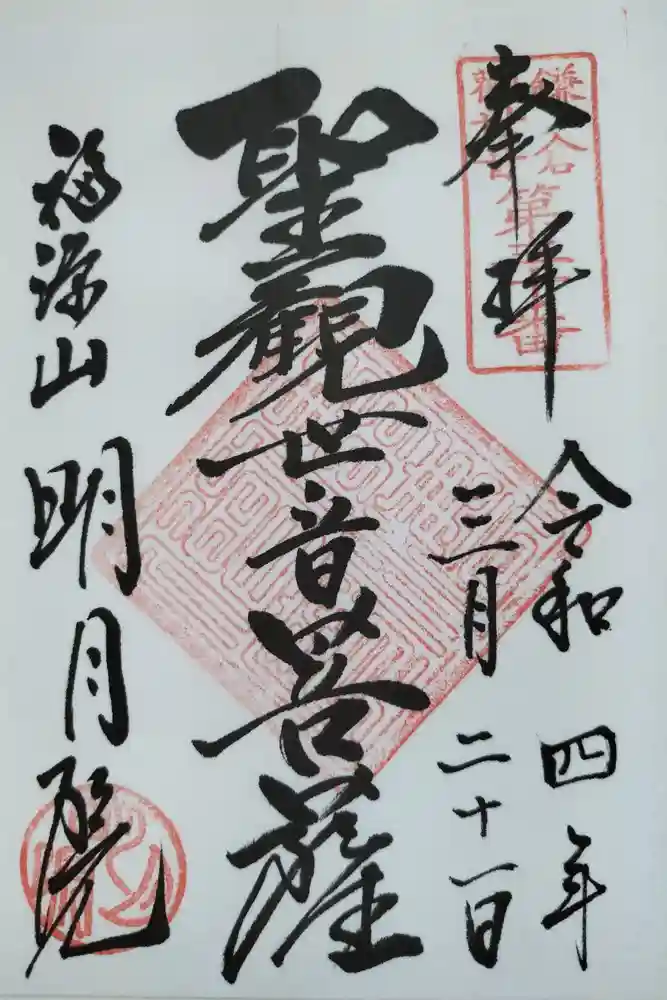 奉拝
令和四年
三月二十一日
聖観世音菩薩
福源山
明月院
鎌倉
第三十番